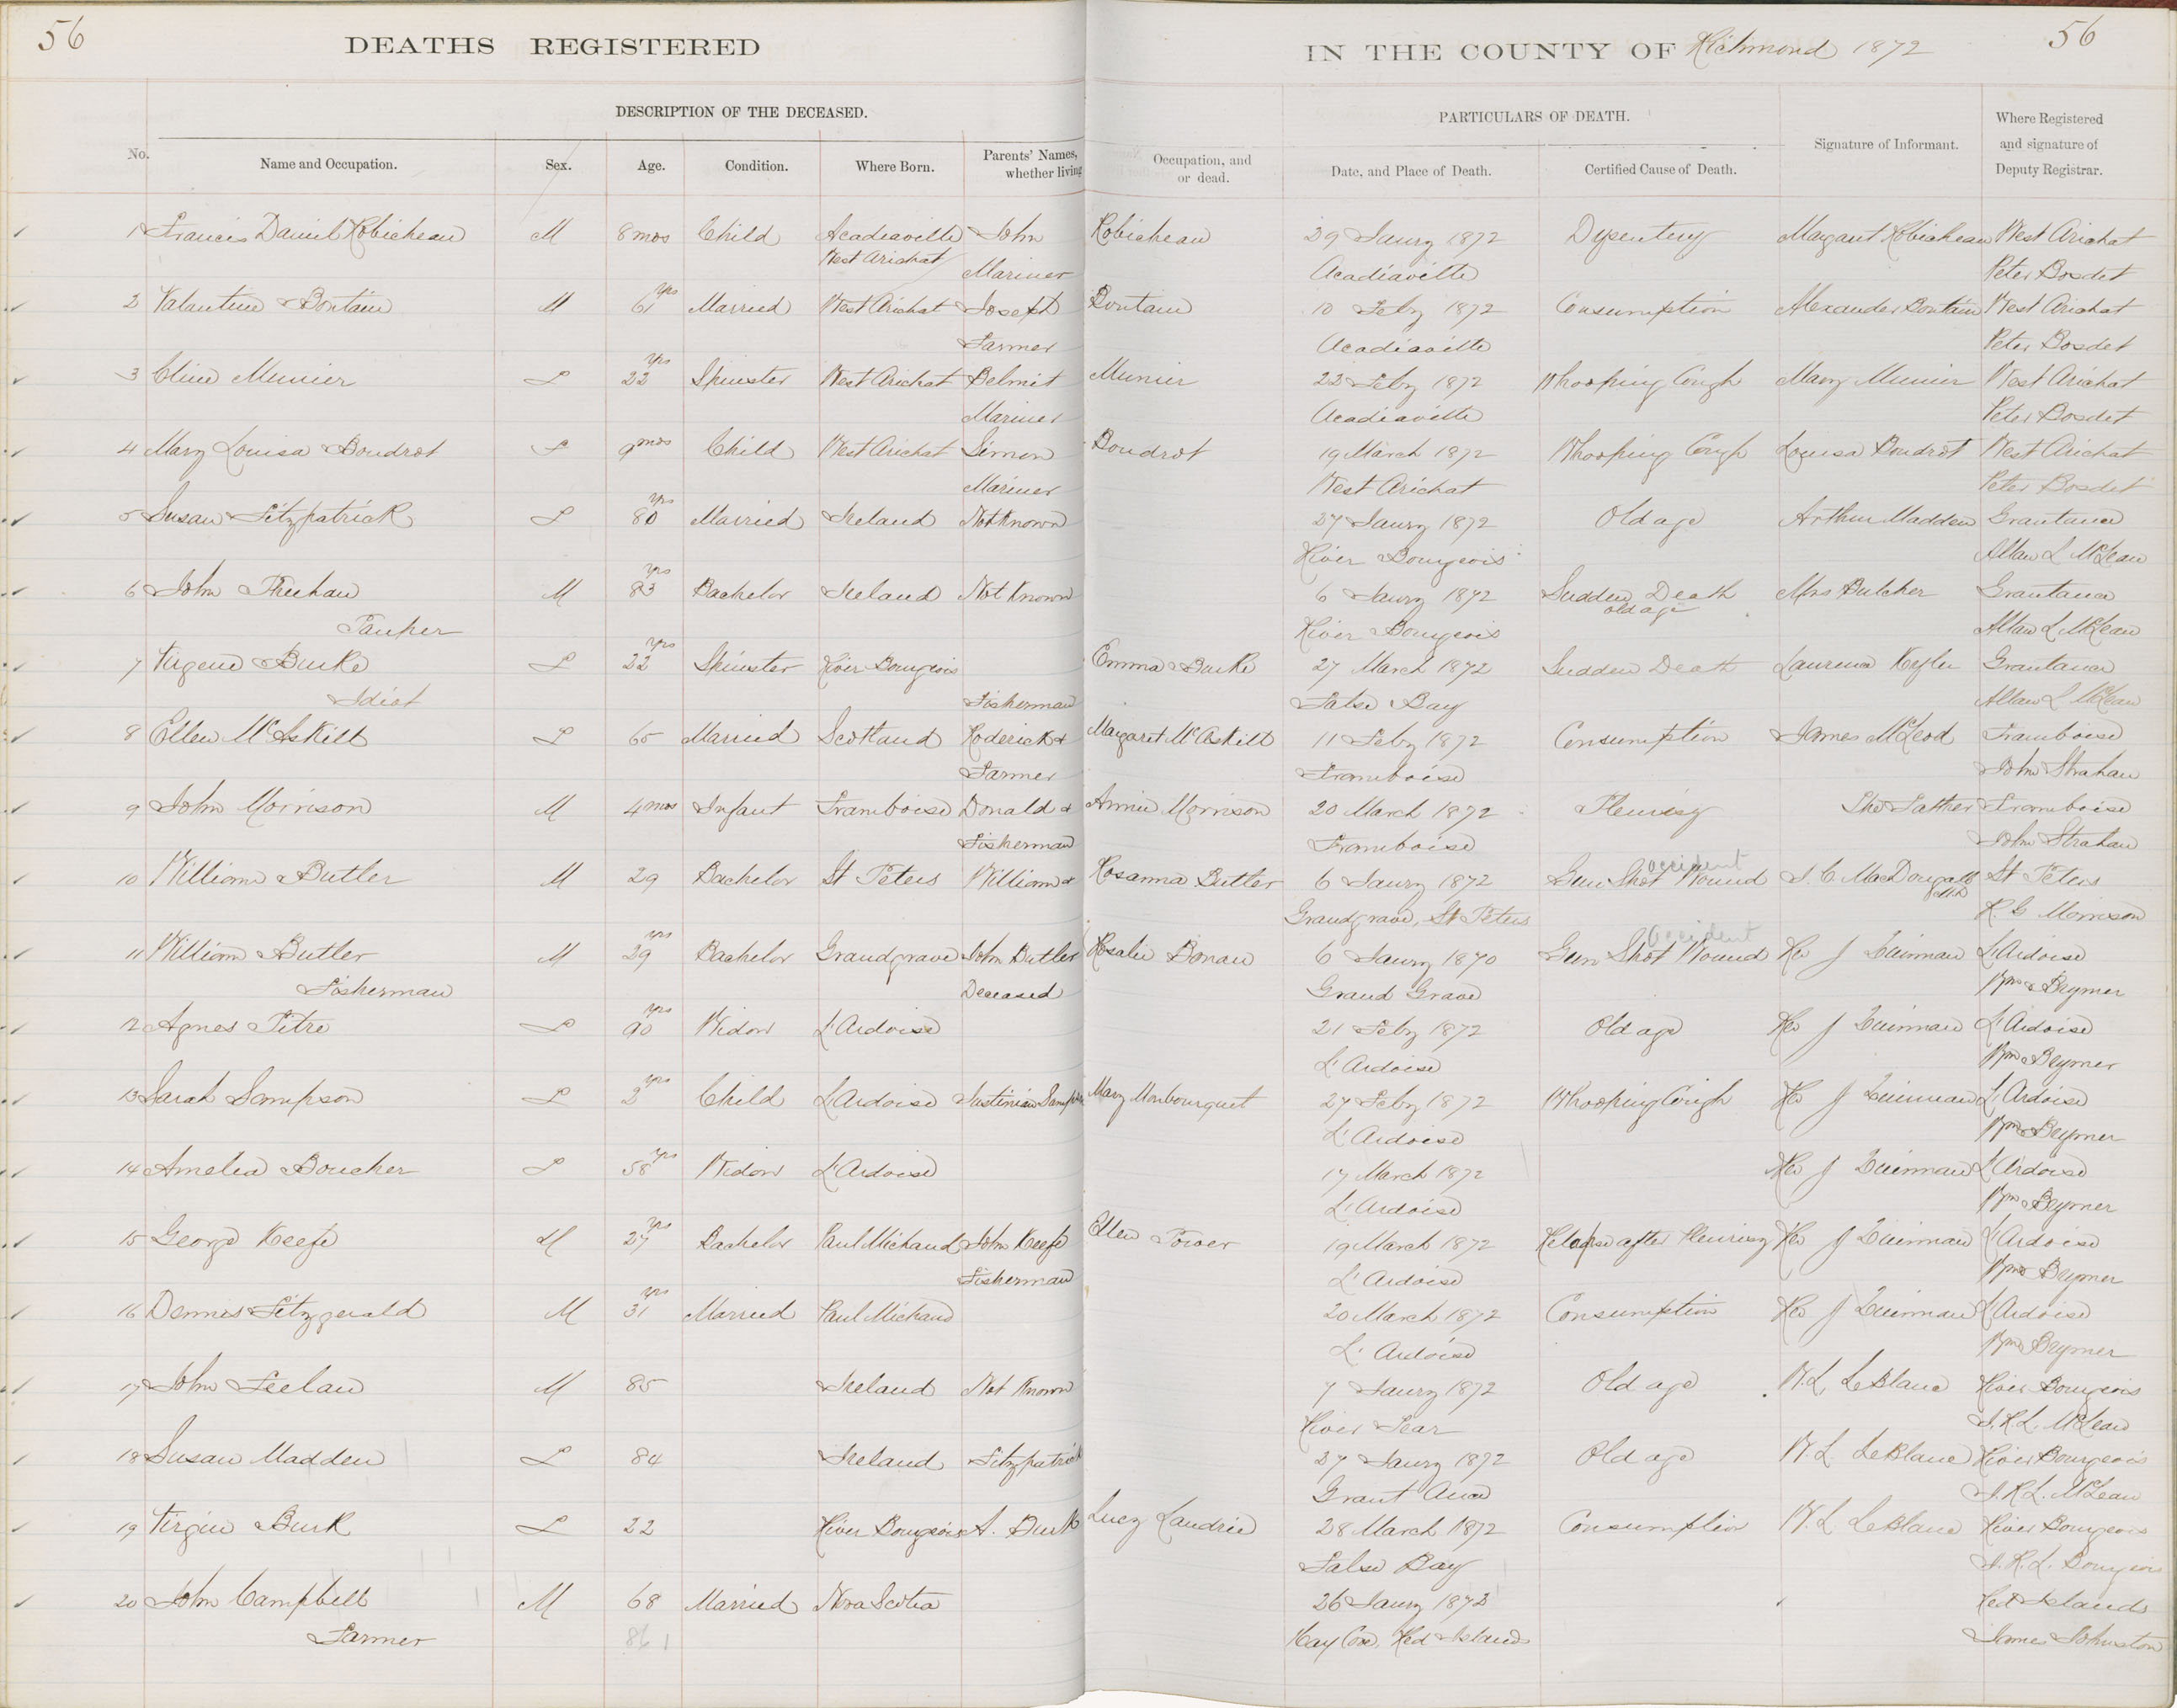 56
DEATHS REGISTERED
IN THE COUNTY OF Richmond 1872
56
DESCRIPTION OF THE DECEASED.
PARTICULARS OF DEATH.
No.
Name and Occupation.
Sex.
Age.
Condition.
Where Born.
Parents' Names, whether living
Occupation, and or dead.
Date, and Place of Death.
Certified Cause of Death.
Signature of Informant.
Where Registered and signature of Deputy Registrar.
1 Francis Daniel Robicheau M 8 mos Child Acadiaville John Robicheau 29 Jaury 1872 Dysentery Margaret Robicheau West Arichat
West Arichat Mariner Acadiaville Peter Bosdet
2 Valantine Bontain M 61 yrs Married West Arichat Joseph Bontain 10 Feby 1872 Consumption Alexander Bontain West Arichat
Farmer Acadiaville Peter Bosdet
3 Munier F 22 yrs Spinster West Arichat Delmit Munier 22 Feby 1872 Whooping Cough Mary Munier West Arichat
Mariner Acadiaville Peter Bosdet
4 Mary Louisa Boudrot F 9 mos Child West Arichat Simon Boudrot 19 March 1872 Whooping Cough Louisa Boudrot West Arichat
Mariner West Arichat Peter Bosdet
5 Susan Fitzpatrick F 80 yrs Married Ireland Not Known 27 Jaury 1872 Old age Arthur Madden Grantance
River Bourgeois Allan L McLean
6 John M 83 yrs Bachelor Ireland Not Known 6 Jaury 1872 Sudden Death Mrs Butcher Grantance
Pauper River Bourgeois old age Allan L McLean
7 Virgene Burke F 22 yrs Spinster River Bourgeois Emma Burke 27 March 1872 Sudden Death Laurence Grantance
Idiot Fisherman False Bay Allan L McLean
8 Ellen McAskill F 65 Married Scotland Roderick & Margaret McAskill 11 Feby 1872 Consumption James McLeod Framboise
Farmer Framboise John Strahan
9 John Morrison M 4 mos Infant Framboise Donald & Annie Morrison 20 March 1872 Pleurisy The Father Framboise
Fisherman Framboise John Strahan
10 William Butler M 29 Bachelor St Peters William & Rosanna Butler 6 Jaury 1872 Gun Shot Wound accident J. C. MacDougall St Peters
Grandgrave, St Peters R. G Morrison
11 William Butler M 29 yrs Bachelor Grandgrave John Butler Rosalie Bonau 6 Jaury 1870 Gun Shot Wound accident Rev J Quinnan L'Ardoise
Fisherman Deceased Grand Grave Wm Brymer
12 Agnes Petre F 90 yrs Widow L'Ardoise 21 Feby 1872 Old age Rev J Quinnan L'Ardoise
L'Ardoise Wm Brymer
13 Sarah Sampson F 2 yrs Child L'Ardoise Justinian Sampson Mary Monbourquet 27 Feby 1872 Whooping Cough Rev J Quinnan L'Ardoise
L'Ardoise Wm Brymer
14 Amelia Boucher F 58 yrs Widow L'Ardoise 17 March 1872 Rev J Quinnan L'Ardoise
L'Ardoise Wm Brymer
15 George Keefe M 27 yrs Bachelor Paul Michaud John Keefe Ellen Power 19 March 1872 Relapse after Pleurisy Rev J Quinnan L'Ardoise
Fisherman L'Ardoise Wm Brymer
16 Dennis Fitzgerald M 31 yrs Married Paul Michaud 20 March 1872 Consumption Rev J Quinnan L'Ardoise
L'Ardoise Wm Brymer
17 John Feelan M 85 Ireland Not Known 7 Jaury 1872 Old age W. L. LeBlanc River Bourgeois
River Tear J. R. L. McLean
18 Susan Madden F 84 Ireland Fitzpatrick 27 Jaury 1872 Old age W. L. LeBlanc River Bourgeois
Grant Ance J. R. L. McLean
19 Virgin Burk F 22 River Bourgeois A. Burk Lucy Landrie 28 March 1872 Consumption W. L. LeBlanc River Bourgeois
False Bay J. R. L. Bourgeois
20 John Campbell M 68 Married Nova Scotia 26 Jaury 1872 Red Islands
Farmer 86 1 Hay Cove, Red Islands James Johnston